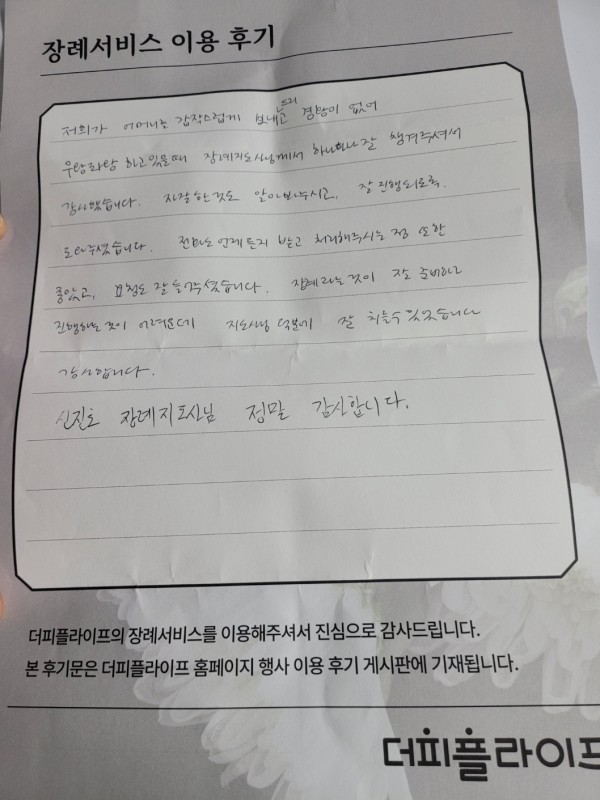 장례서비스 이용 후기
저희가 어머니를 갑작스럽게 보내드리고 경황이 없어
우왕좌왕 하고있을때 장례지도사님께서 하나하나 잘 챙겨주셔서
감사했습니다. 자잘한것도 알아봐주시고, 잘 진행되도록
도와주셨습니다. 전화도 언제든지 받고 처리해주시는점 또한
좋았고, 요청도 잘 들어주셨습니다. 장례라는것이 준비하고
진행하는것이 어려운데 지도사님 덕분에 잘 치를수있었습니다
감사합니다.
신진호 장례지도사님 정말 감사합니다.
더피플라이프의 장례서비스를 이용해주셔서 진심으로 감사드립니다.
본 후기문은 더피플라이프 홈페이지 행사 이용 후기 게시판에 기재됩니다.
더피플라이프